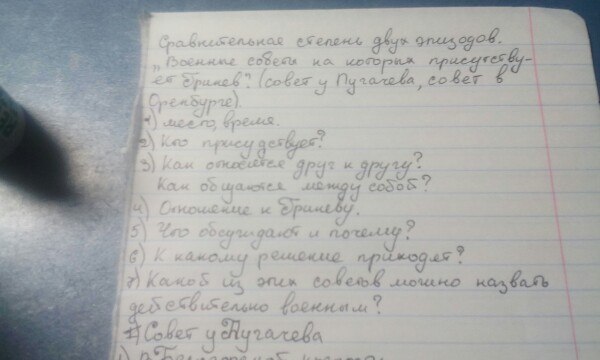 Сравнительная степень двух эпизодов.
„Военные советы на которых присутству-
ет Гринев". (совет у Пугачева, совет в
Оренбурге).
1) место, время.
2) Кто присудствует?
3) Как относятся друг к другу?
Как общаются между собой?
4) Отношение к Гриневу.
5) Что обсуждают и почему?
6) К какому решение приходят?
7) Какой из этих советов можно назвать
действительно военным?
I) Совет у Пугачева
1) В Белогорской